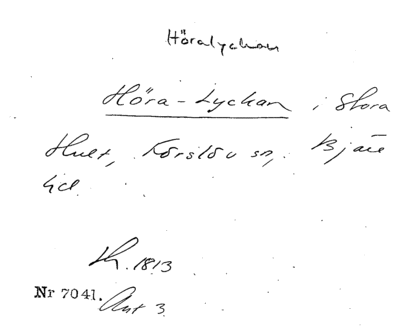 Höralyckan
Höra-Lyckan i Stora
Hult, Förslöv sn, Bjäre
hd.
Lh. 1813
Nr 7041. Ant 3.